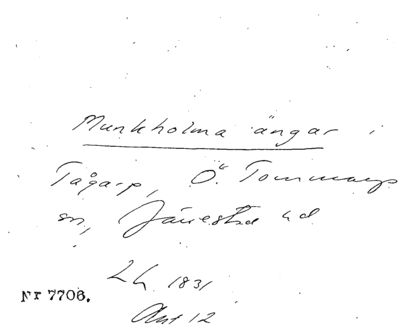 Munkholma ängar i
Tågarp, Ö. Tommarps
sn, Järrestad hd
Lh 1831
Nr 7706.
Akt 12